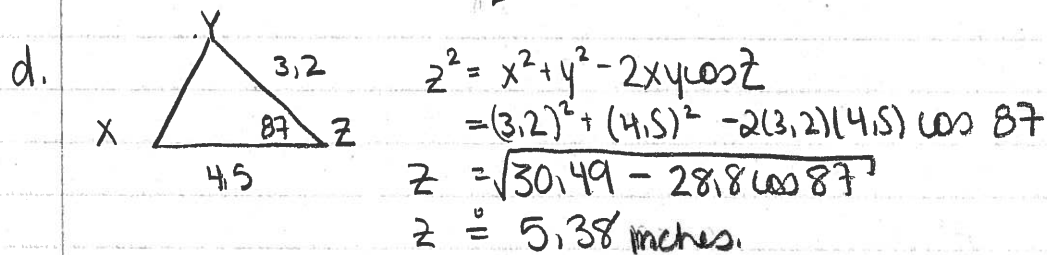 d.
Y
3,2
X
87
Z
4,5
z² = x² + y² - 2xycosZ
= (3,2)² + (4,5)² - 2(3,2)(4,5) cos 87
z = √30,49 - 28,8 cos 87
z ≐ 5,38 inches.